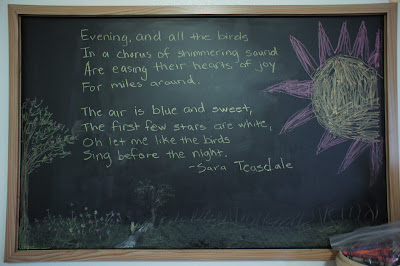 Evening, and all the birds
In a chorus of shimmering sound
Are easing their hearts of joy
For miles around.
The air is blue and sweet,
The first few stars are white,
Oh let me like the birds
Sing before the night.
~Sara Teasdale